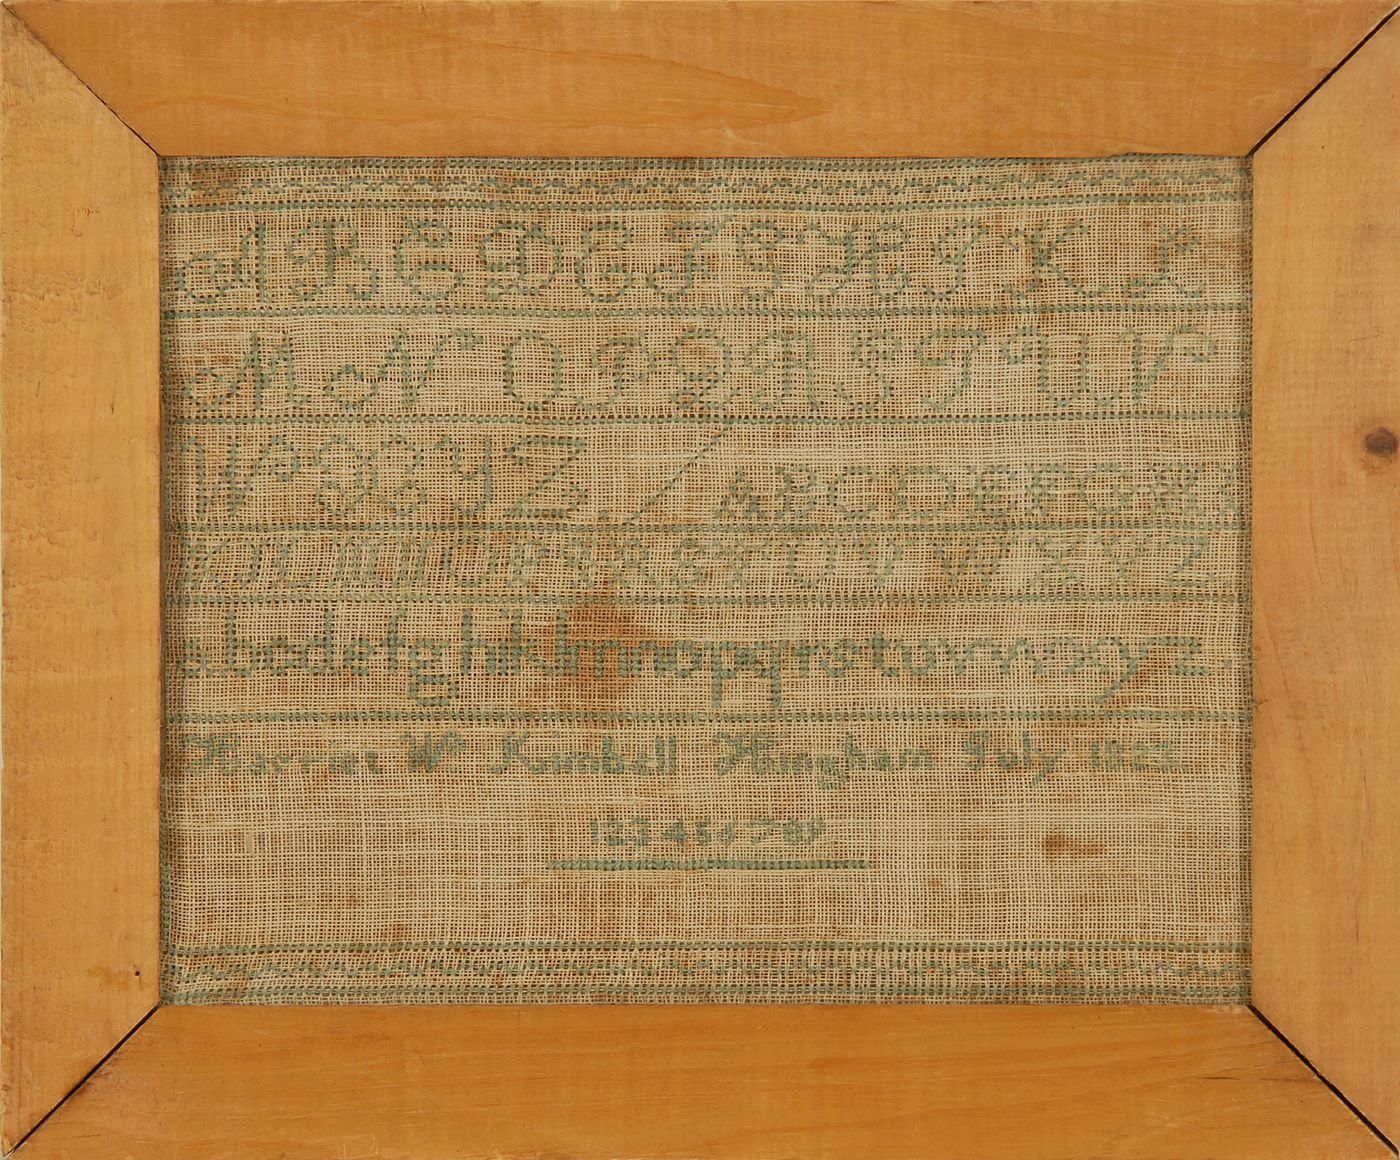 A B C D E F G H I K L
M N O P Q R S T U V
W X Y Z. A B C D E F G H I
K J L M N O P Q R S T U V W X Y Z
a b c d e f g h i k l m n o p q r s t u v w x y z.
Harriet W. Kimball Hingham July 1823.
1 2 3 4 5 6 7 8 9